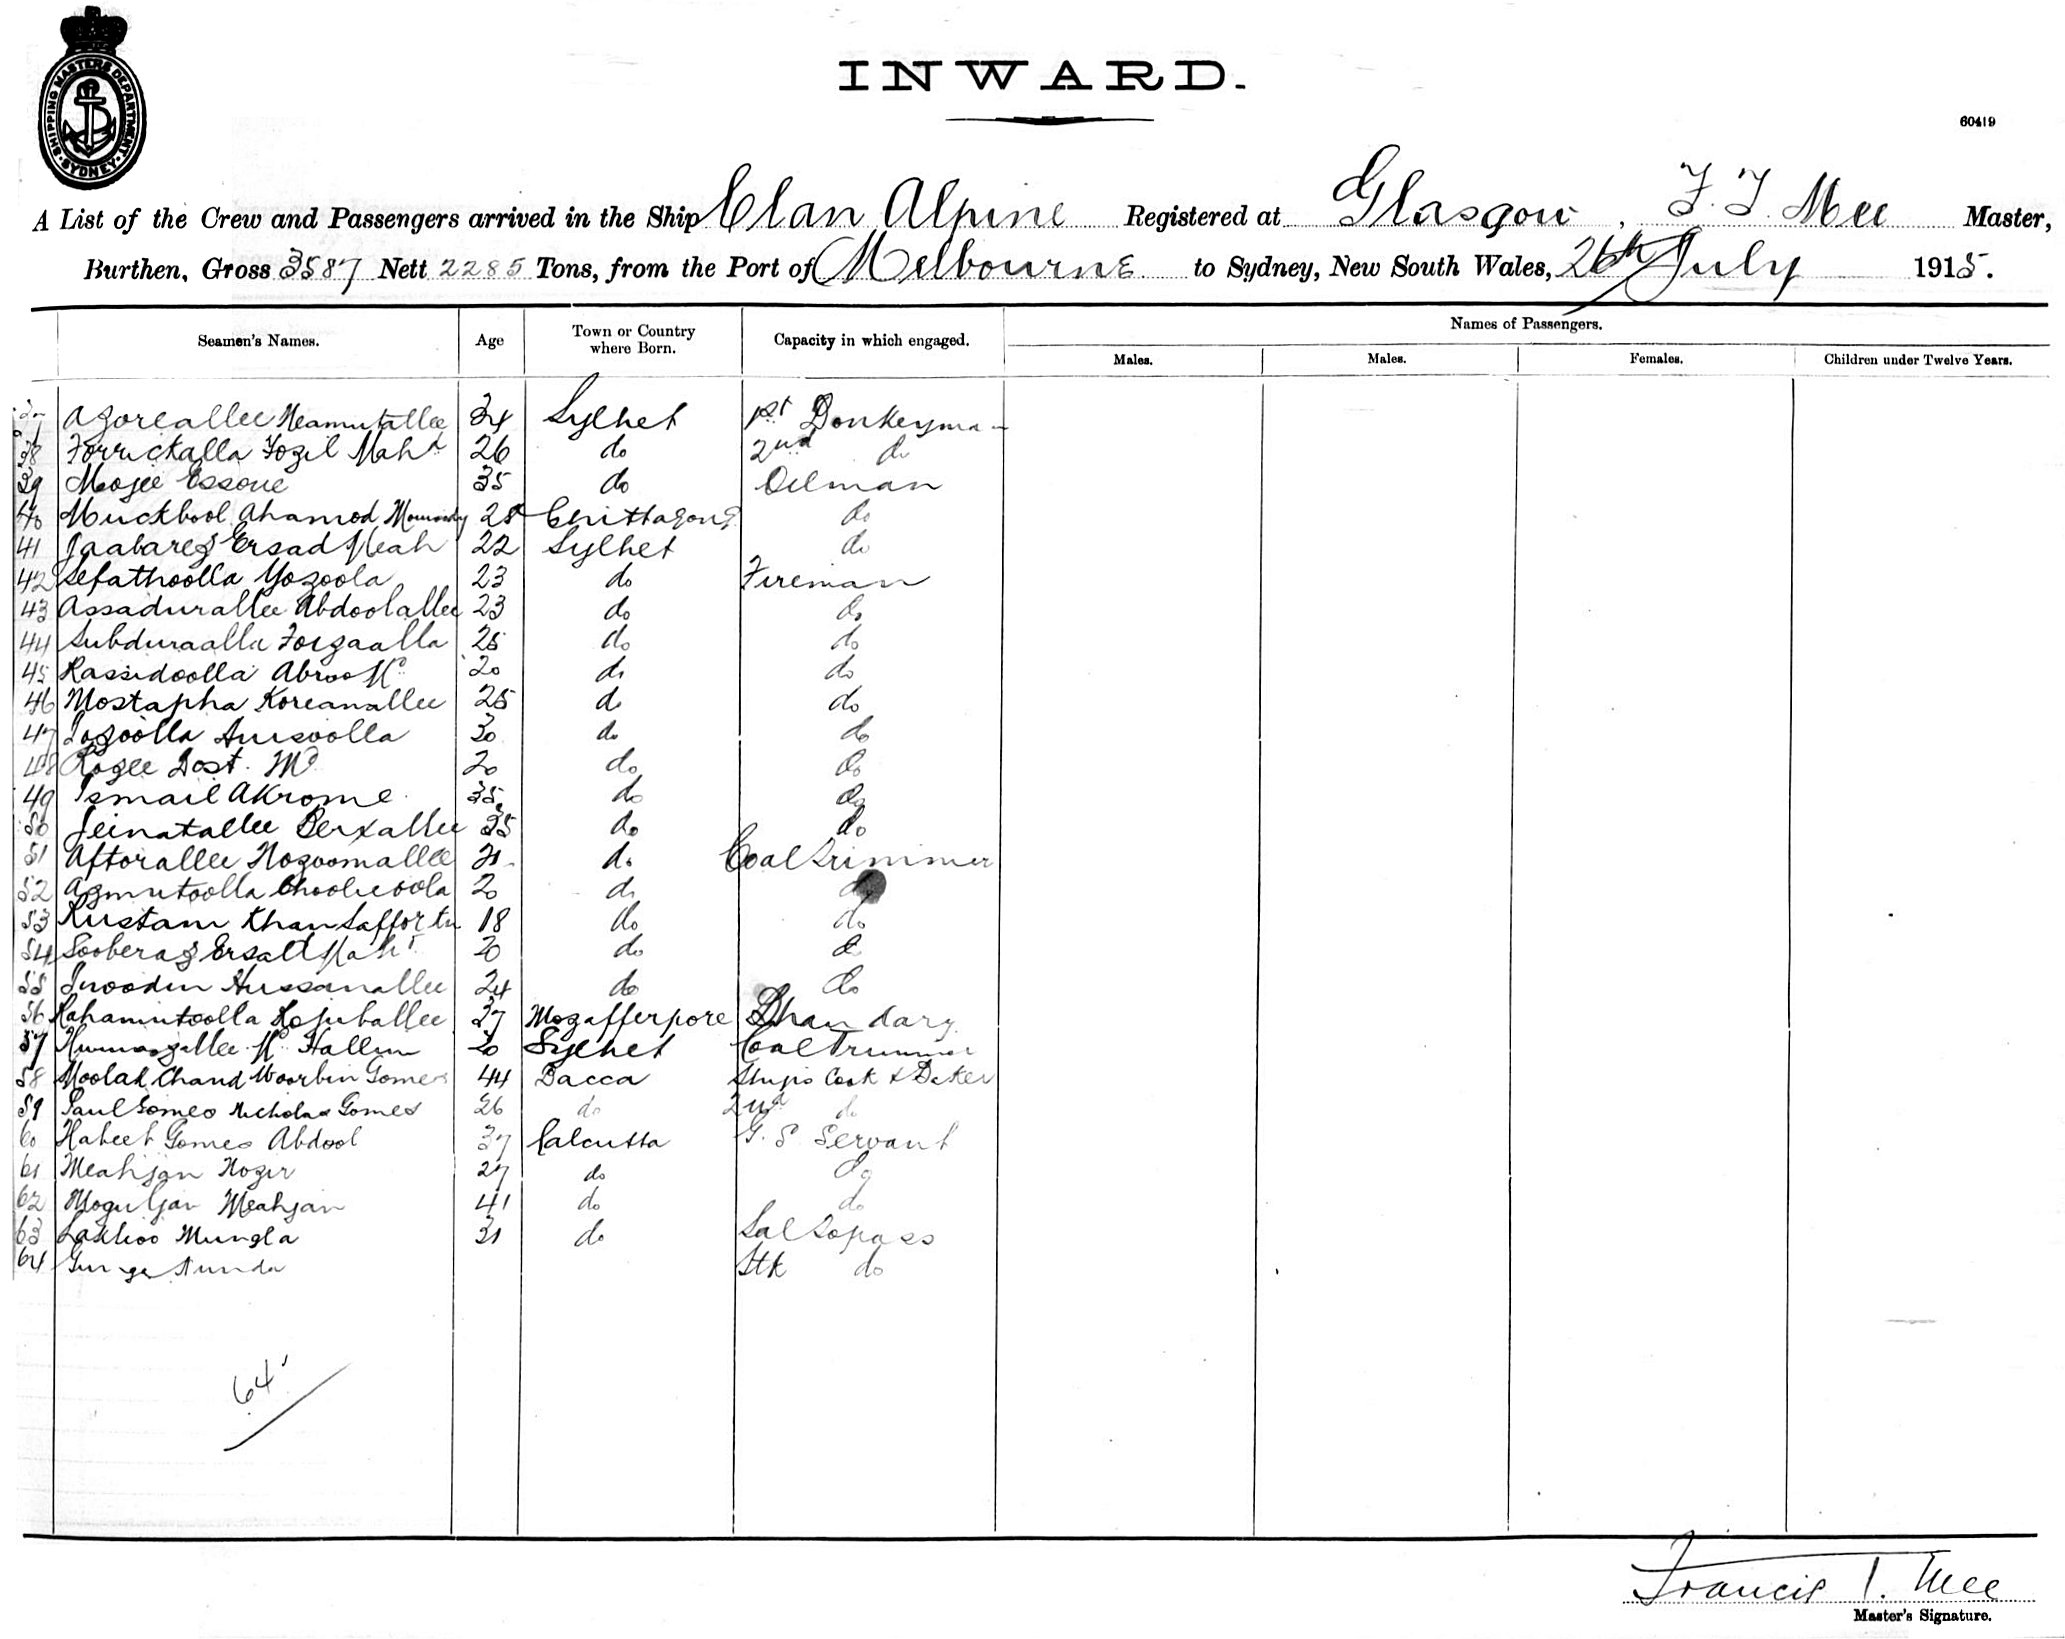 SHIPPING MASTERS DEPARTMENT. SYDNEY.
INWARD.
60419
A List of the Crew and Passengers arrived in the Ship Clan Alpine Registered at Glasgow, F. T. Mee Master,
Burthen, Gross 3587 Nett 2285 Tons, from the Port of Melbourne to Sydney, New South Wales, 26th July 1915.
Seamen's Names. Age Town or Country where Born. Capacity in which engaged. Names of Passengers.
Males. Males. Females. Children under Twelve Years.
Azoreallee Neamutallee 34 Sylhet 1st Donkeyman
38 Forrickalla Fozil Mahd 26 do 2nd do
39 Mojee Essone 35 do Oilman
40 Muckbool Ahamod 28 Chittagong do
41 Jaabarez Ersad Meah 22 Sylhet do
42 Sefathoolla Yozoola 23 do Fireman
43 Assadurallee Abdoolallee 23 do do
44 Subduraalla Forzaalla 25 do do
45 Rassidoolla Abroo Md 20 do do
46 Mostapha Koreanallee 25 do do
47 Aurvoolla 30 do do
48 Rozee Dost. Md 20 do do
49 Ismail Akrome 35 do do
50 Jeinatallee Berxallee 35 do do
51 Aftorallee Nozoomallee 21 do Coal Trimmer
52 Azmutoolla Choolieoola 20 do do
53 Rustam Khan Saffor 18 do do
54 Sooberaz Ersad Mahd 20 do do
55 Hussanallee 24 do do
56 Rahamutoolla Rojuballee 37 Mozafferpore Bhandary
57 Md Hallim 20 Sylhet Coal Trimmer
58 Moolah Chand Woorbin Gomes 44 Dacca Ships Cook & Baker
59 Paul Gomes Nicholas Gomes 26 do 2nd do
60 Habeeb Gomes Abdool 37 Calcutta G. S. Servant
61 Meahjan Nozir 27 do do
62 Mogul Jan Meahjan 41 do do
63 Mungla 31 do Sal Topass
64 Gunga Nunda Stk do
64
Francis T. Mee
Master's Signature.